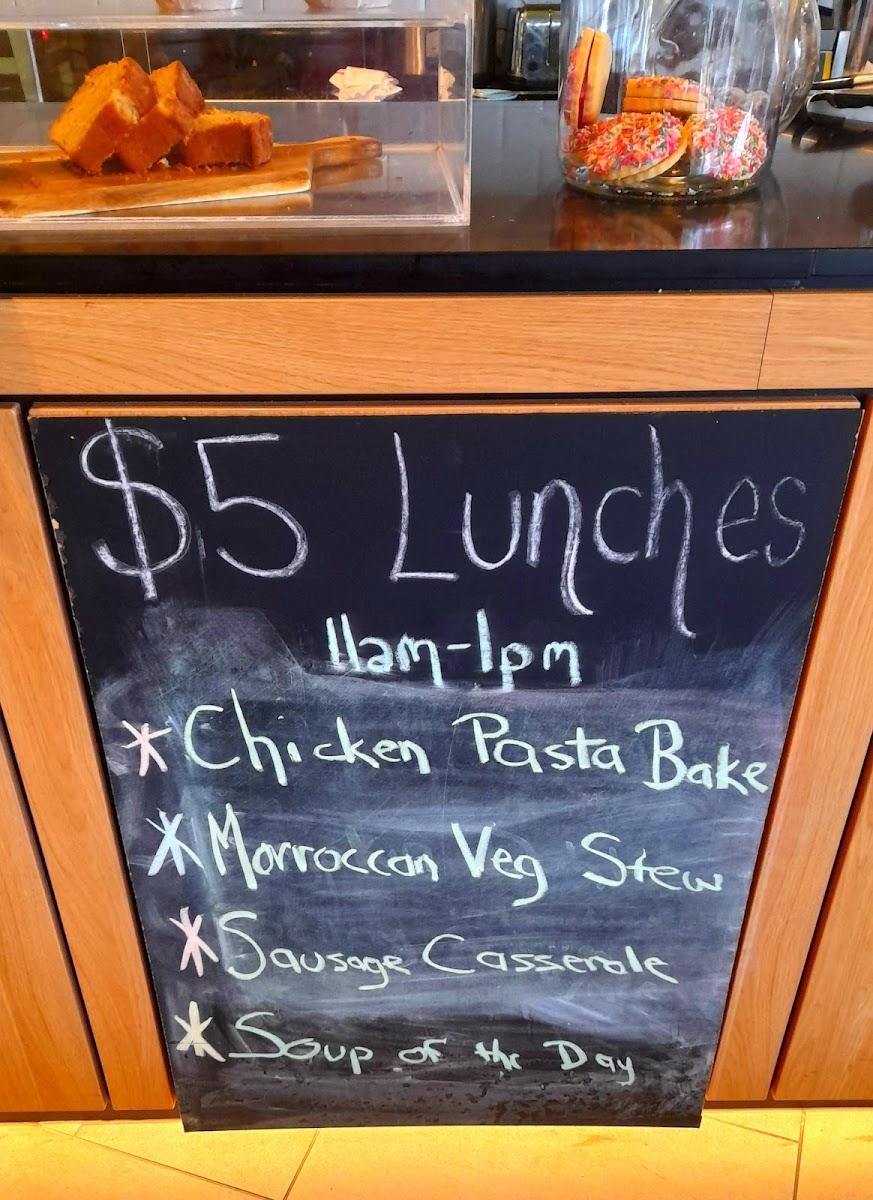 $5 Lunches
11am-1pm
* Chicken Pasta Bake
* Morroccan Veg Stew
* Sausage Casserole
* Soup of the Day